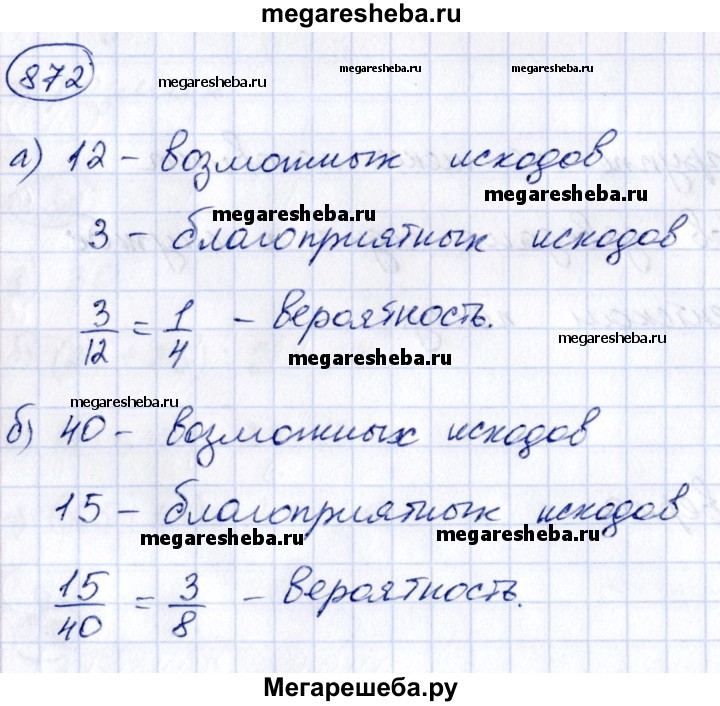 megaresheba.ru
872
megaresheba.ru
megaresheba.ru
megaresheba.ru
а) 12 - возможных исходов
megaresheba.ru
megaresheba.ru
3 - благоприятных исходов
3/12 = 1/4 - вероятность.
megaresheba.ru
megaresheba.ru
megaresheba.ru
б) 40 - возможных исходов
15 - благоприятных исходов
megaresheba.ru
megaresheba.ru
15/40 = 3/8 - вероятность.
Мегарешеба.ру